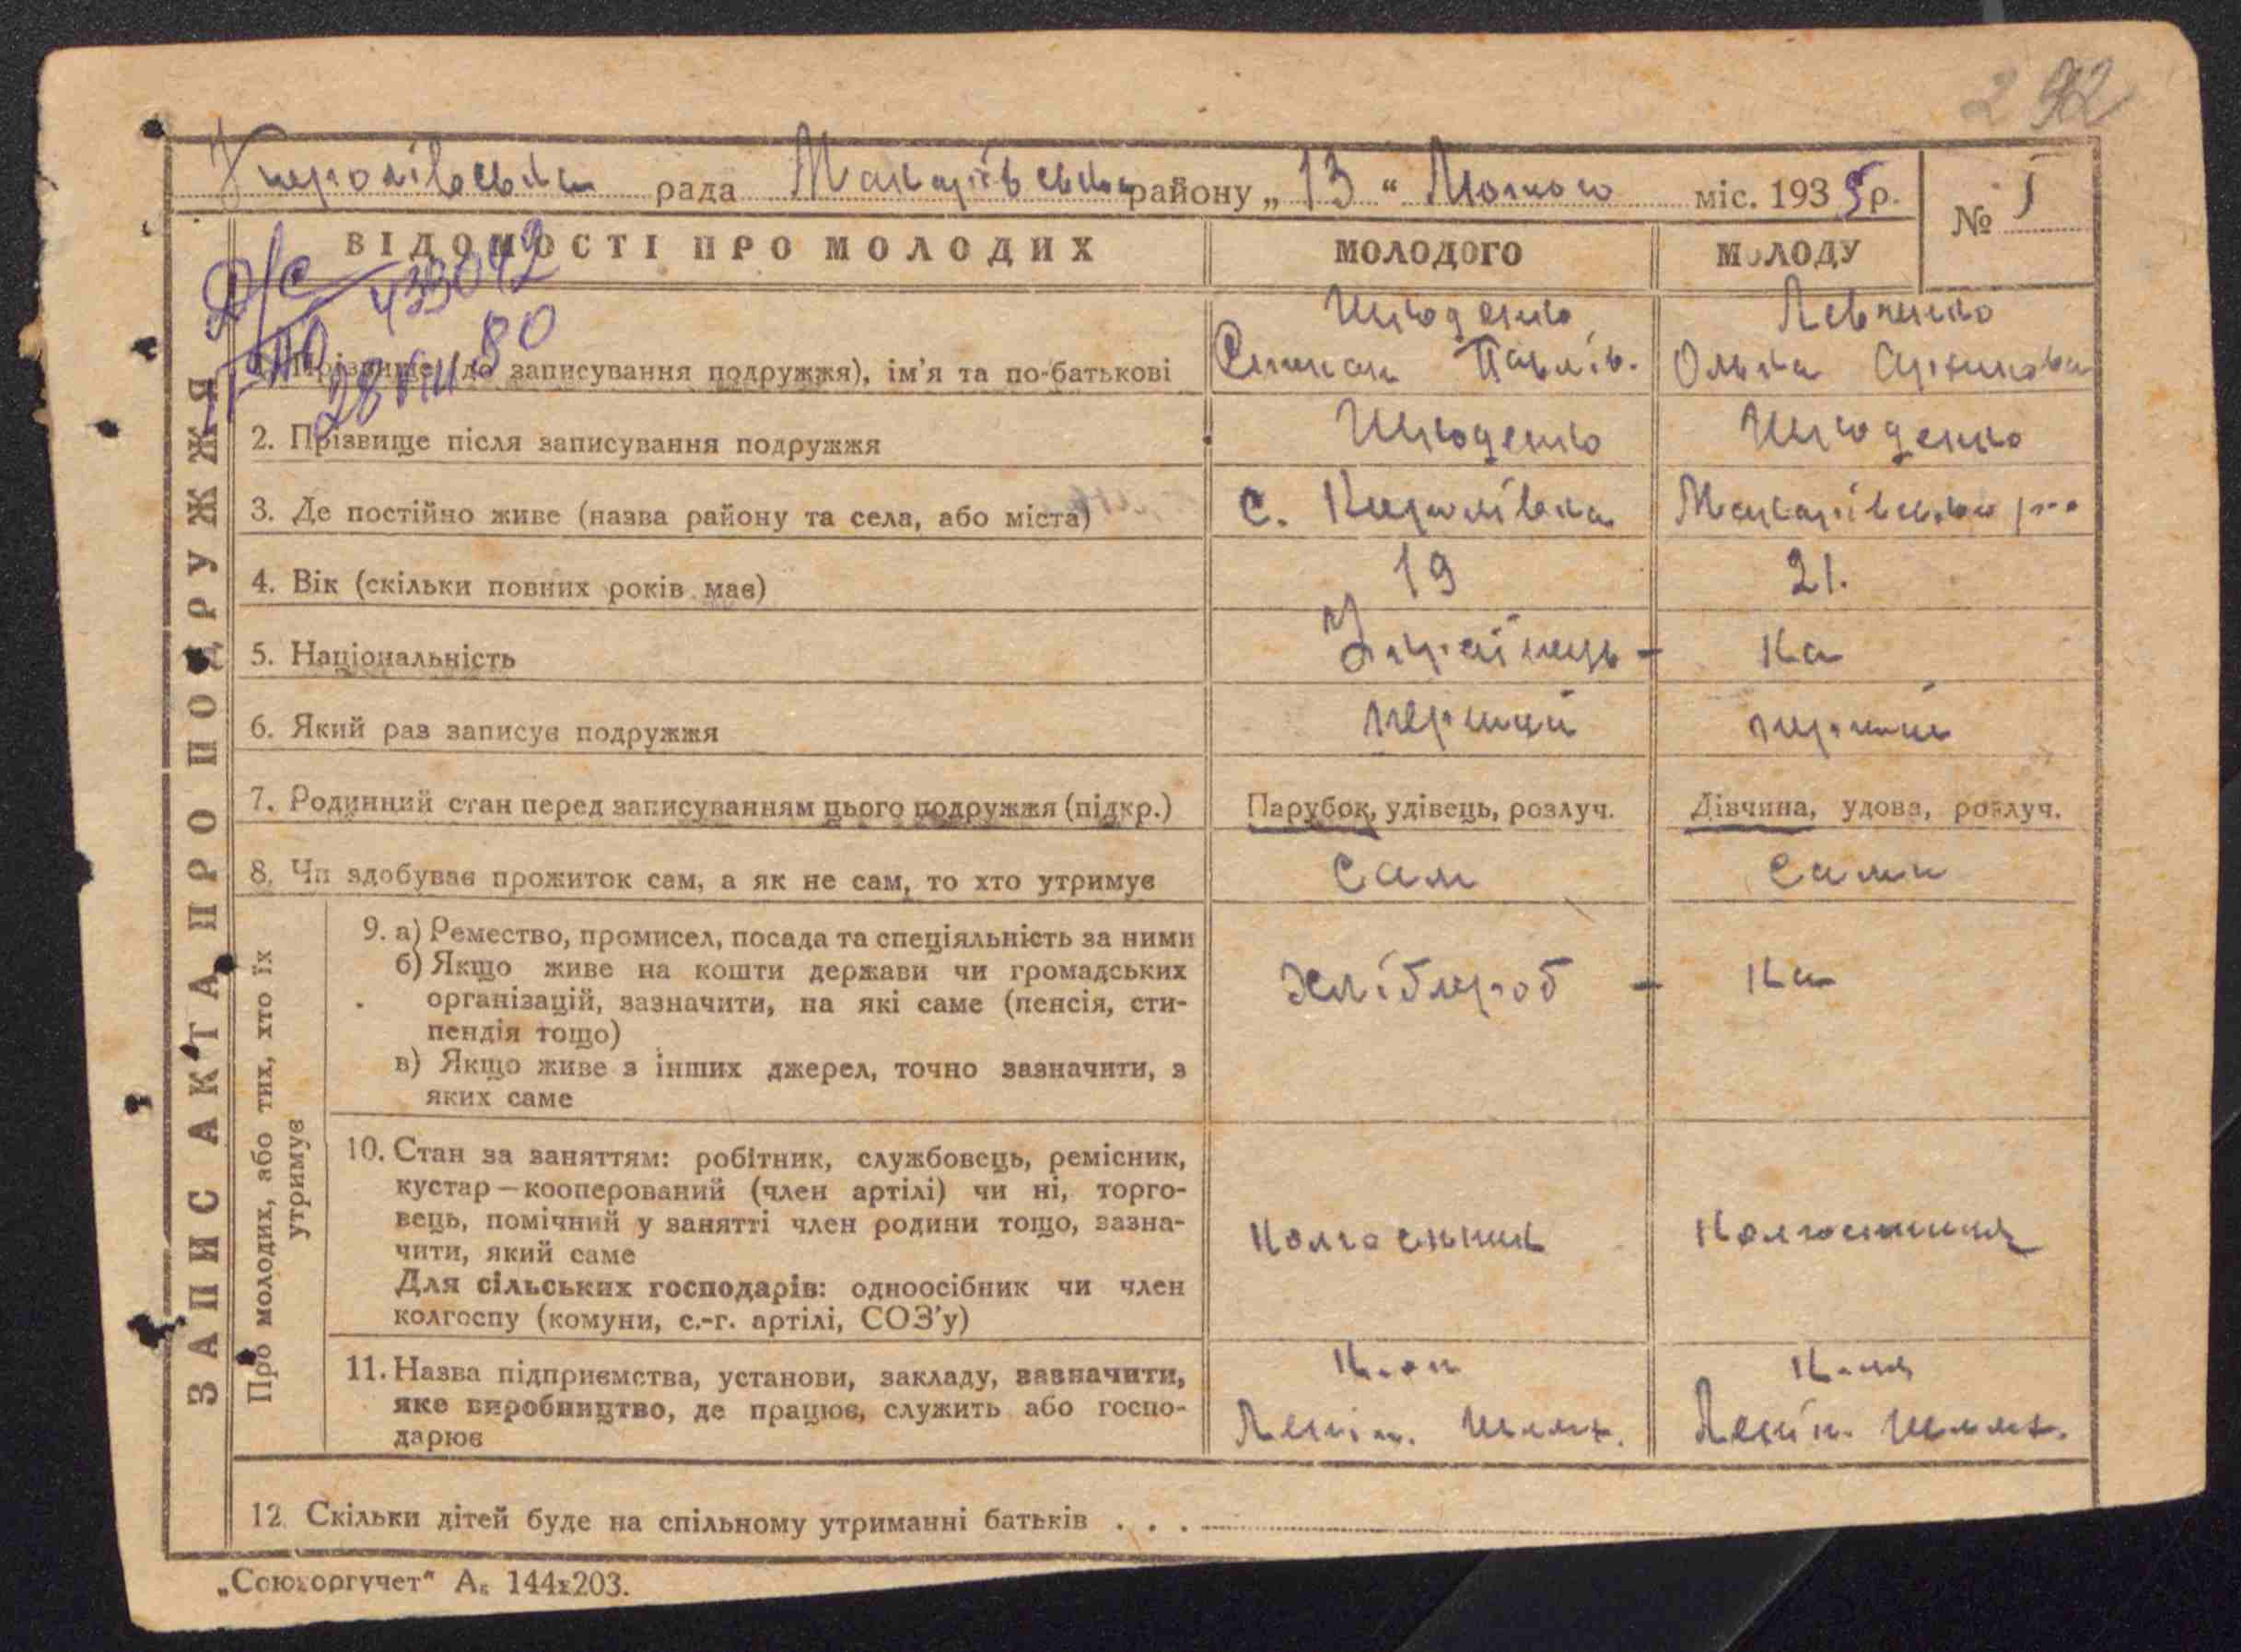 292
рада Макарівського району „13“ Лютого міс. 1935р.
№ 1
ВІДОМОСТІ ПРО МОЛОДИХ
МОЛОДОГО
МОЛОДУ
Д/С 433042
28 80
ЗАПИС АКТА ПРО ПОДРУЖЖЯ
1. Прізвище (до записування подружжя), ім'я та по-батькові
Степан Павлів.
Левченко
Ольга
2. Прізвище після записування подружжя
3. Де постійно живе (назва району та села, або міста)
с. Королівка
Макарівського р-о
4. Вік (скільки повних років має)
19
21.
5. Національність
Українець -
ка
6. Який раз записує подружжя
перший
перший
7. Родинний стан перед записуванням цього подружжя (підкр.)
Парубок, удівець, розлуч.
Дівчина, удова, розлуч.
8. Чи здобуває прожиток сам, а як не сам, то хто утримує
Сам
Сама
Про молодих, або тих, хто їх
утримує
9. а) Ремество, промисел, посада та спеціяльність за ними
б) Якщо живе на кошти держави чи громадських
організацій, зазначити, на які саме (пенсія, сти-
пендія тощо)
в) Якщо живе з інших джерел, точно зазначити, з
яких саме
Хлібороб -
ка
10. Стан за заняттям: робітник, службовець, ремісник,
кустар—кооперований (член артілі) чи ні, торго-
вець, помічний у занятті член родини тощо, зазна-
чити, який саме
Для сільських господарів: одноосібник чи член
колгоспу (комуни, с.-г. артілі, СОЗ'у)
колгоспник
колгоспниця
11. Назва підприємства, установи, закладу, зазначити,
яке виробництво, де працює, служить або госпо-
дарює
Ленін. шлях.
Ленін. шлях.
12. Скільки дітей буде на спільному утриманні батьків . . .
„Союзоргучет“ А₅ 144х203.